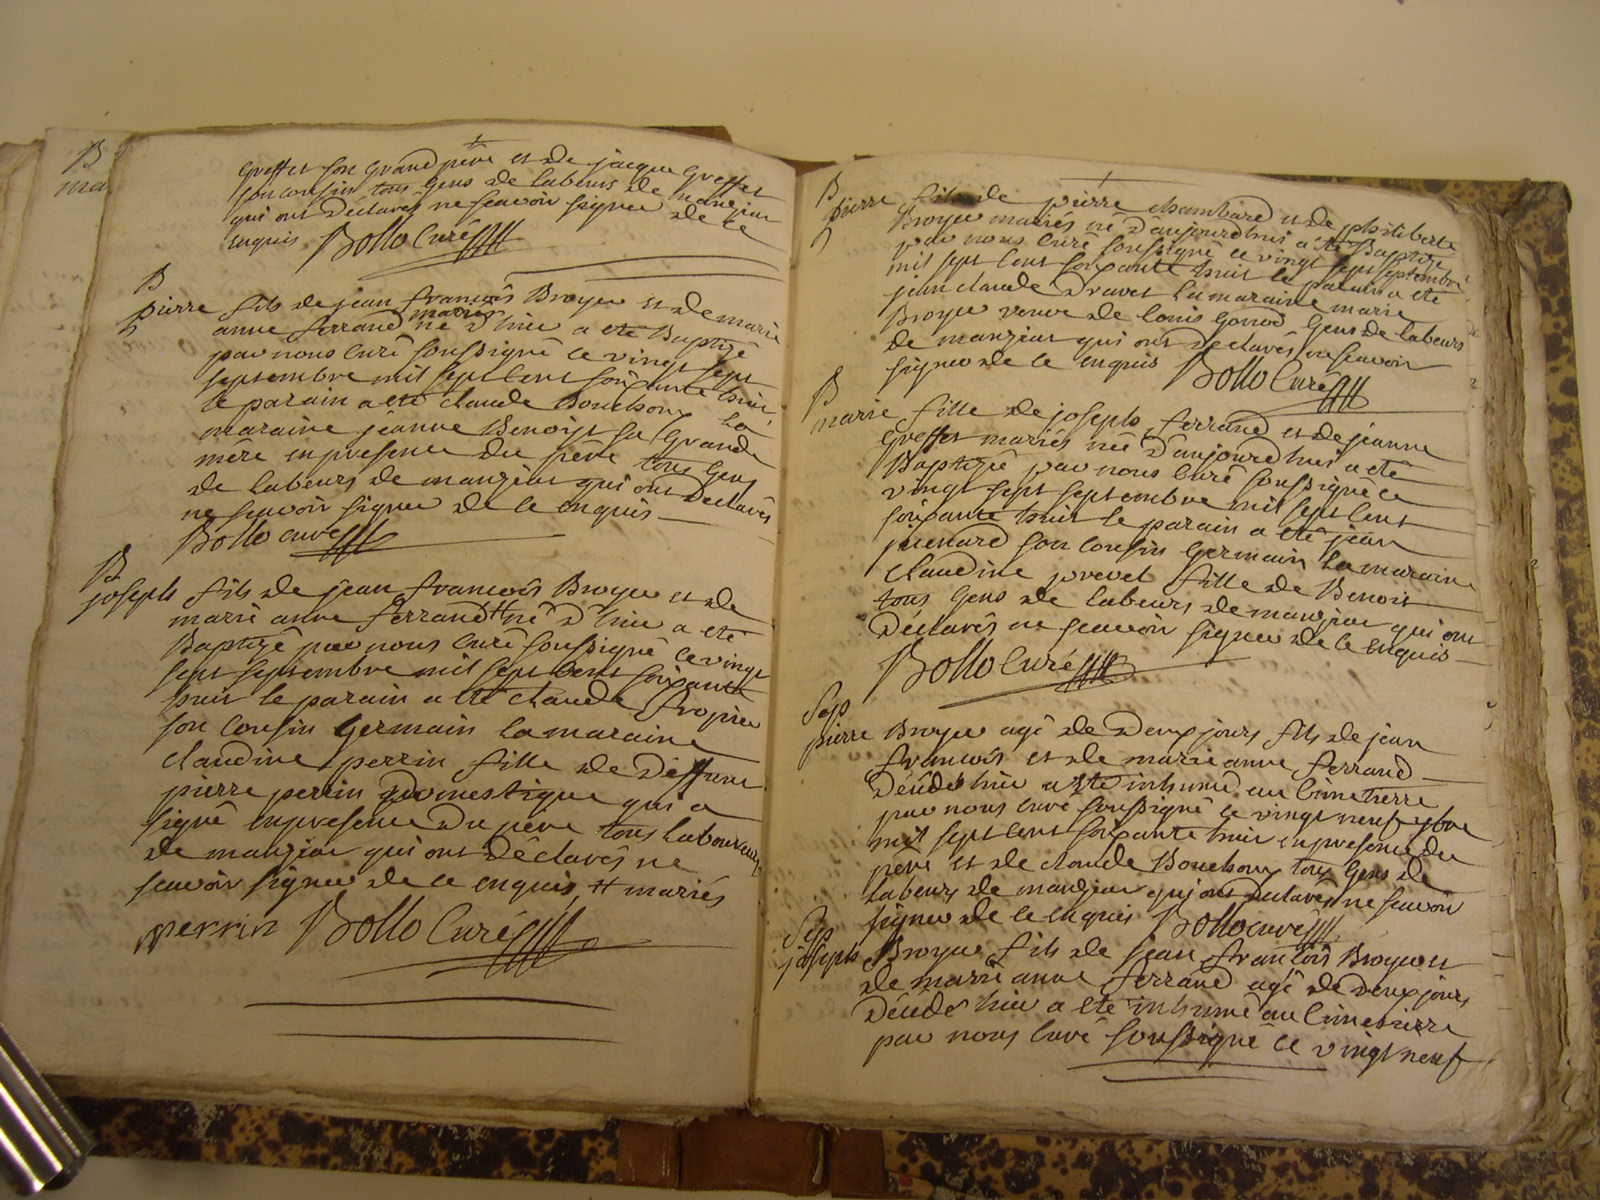 B
ma
greffet son grand père et de jacque greffet
son cousin tous gens de labeurs de manziat
qui ont déclarés ne scavoir signer de ce
enquis Bollo Curé
B
pierre fils de jean francois Broyer et de marie
anne ferrand mariés né d'hier a eté Baptizé
par nous Curé soussigné le vingt sept
septembre mil sept cent soixante huit
le parain a eté claude Bouchoux la
maraine jeanne Benoyt sa grande
mère en presence du père tous gens
de labeurs de manziat qui ont déclarés
ne scavoir signer de ce enquis
Bollo curé
B
joseph fils de jean francois Broyer et de
marie anne ferrand # né d'hier a eté
Baptizé par nous Curé soussigné le vingt
sept septembre mil sept cent soixante
huit le parain a eté claude
son cousin germain la maraine
claudine perrin fille de deffunt
pierre perrin domestique qui a
signé en presence du père tous laboureurs
de manziat qui ont déclarés ne
scavoir signer de ce enquis # mariés
perrin Bollo Curé
B
pierre fils de pierre chambard et de philiberte
Broyer mariés né d'aujourd'huy a eté Baptizé
par nous Curé soussigné le vingt sept septembre
mil sept cent soixante huit le parain a eté
jean claude la maraine marie
Broyer veuve de louis gonod gens de labeurs
de manziat qui ont déclarés ne scavoir
signer de ce enquis Bollo Curé
B
marie fille de joseph ferrand et de jeanne
greffet mariés née d'aujourd'hui a eté
Baptizée par nous Curé soussigné le
vingt sept septembre mil sept cent
soixante huit le parain a eté jean
son cousin germain la maraine
claudine prevel fille de Benoit
tous gens de labeurs de manziat qui ont
déclarés ne scavoir signer de ce enquis
Bollo Curé
Sep
pierre Broyer agé de deux jours fils de jean
francois et de marie anne ferrand
décédé hier a eté inhumé au cimetierre
par nous curé soussigné le vingt neuf 7bre
mil sept cent soixante huit en presence du
père et de claude Bouchoux tous gens de
labeurs de manziat qui ont déclarés ne scavoir
signer de ce enquis Bollo curé
Sep
joseph Broyer fils de jean francois Broyer et
de marie anne ferrand agé de deux jours
décédé hier a eté inhumé au cimetierre
par nous curé soussigné le vingt neuf